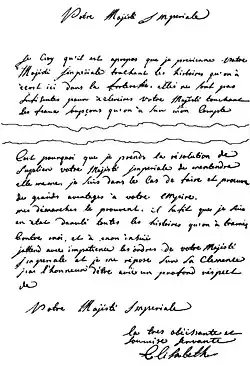 Votre Majesté Imperiale
Je croy qu'il est apropos que je previenne Votre
Majesté Imperiale touchant les histoires qu'on a
écrit ici dans la forteresse. elles ne sont pas
suffisantes pour éclaircir Votre Majesté touchant
les faux supçons qu'on a sur mon Compte
C'est pourquoi que je prends la résolution de
suplier Votre Majesté Imperiale de m'entendre
elle meme, je suis dans les Cas de faire et procurer
des grands avantages à votre Empire.
mes démarches le prouvent. il suffit que je suis
en etat toutes les histoires qu'on a
contre moi, et à mon insçu
j'attend avec impatience les ordres de Votre Majesté
Imperiale et je me repose sur sa Clemence
j'ai l'honneur d'être avec un profond respect
de
Votre Majesté Imperiale
la tres obeissante et
soumise servante
Elisabeth